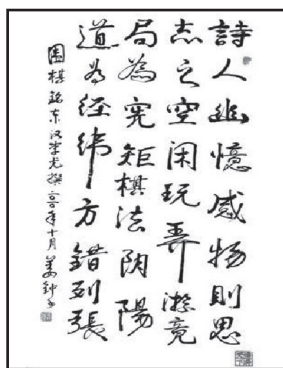 詩人幽憶感物則思
志之空闲玩弄游竟
局為宪矩棋法阴陽
道为经緯方錯列張
围棋銘东汉李尤撰 年十月姜钟